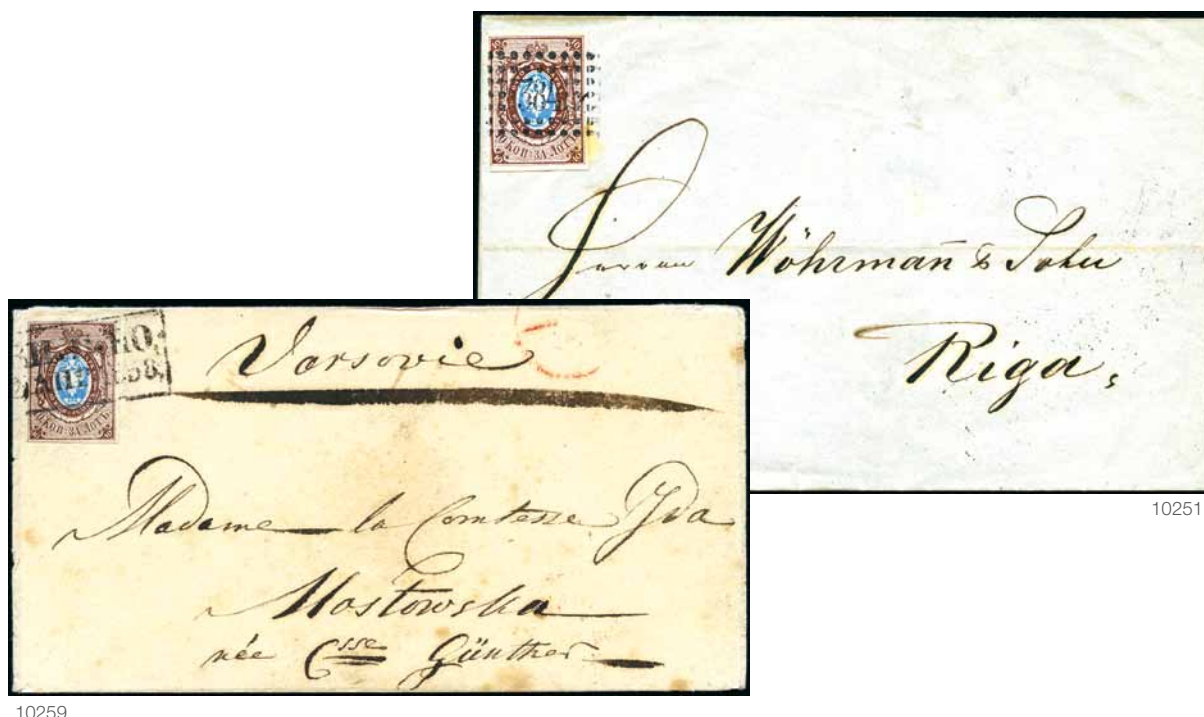 10 КОП. ЗА ЛОТЪ
Herren Wöhrman̄ & Sohn
Riga,
10251
10 КОП. ЗА ЛОТЪ
Varsovie
Madame la Comtesse Ida
Mostowska
née Csse Günther
10259